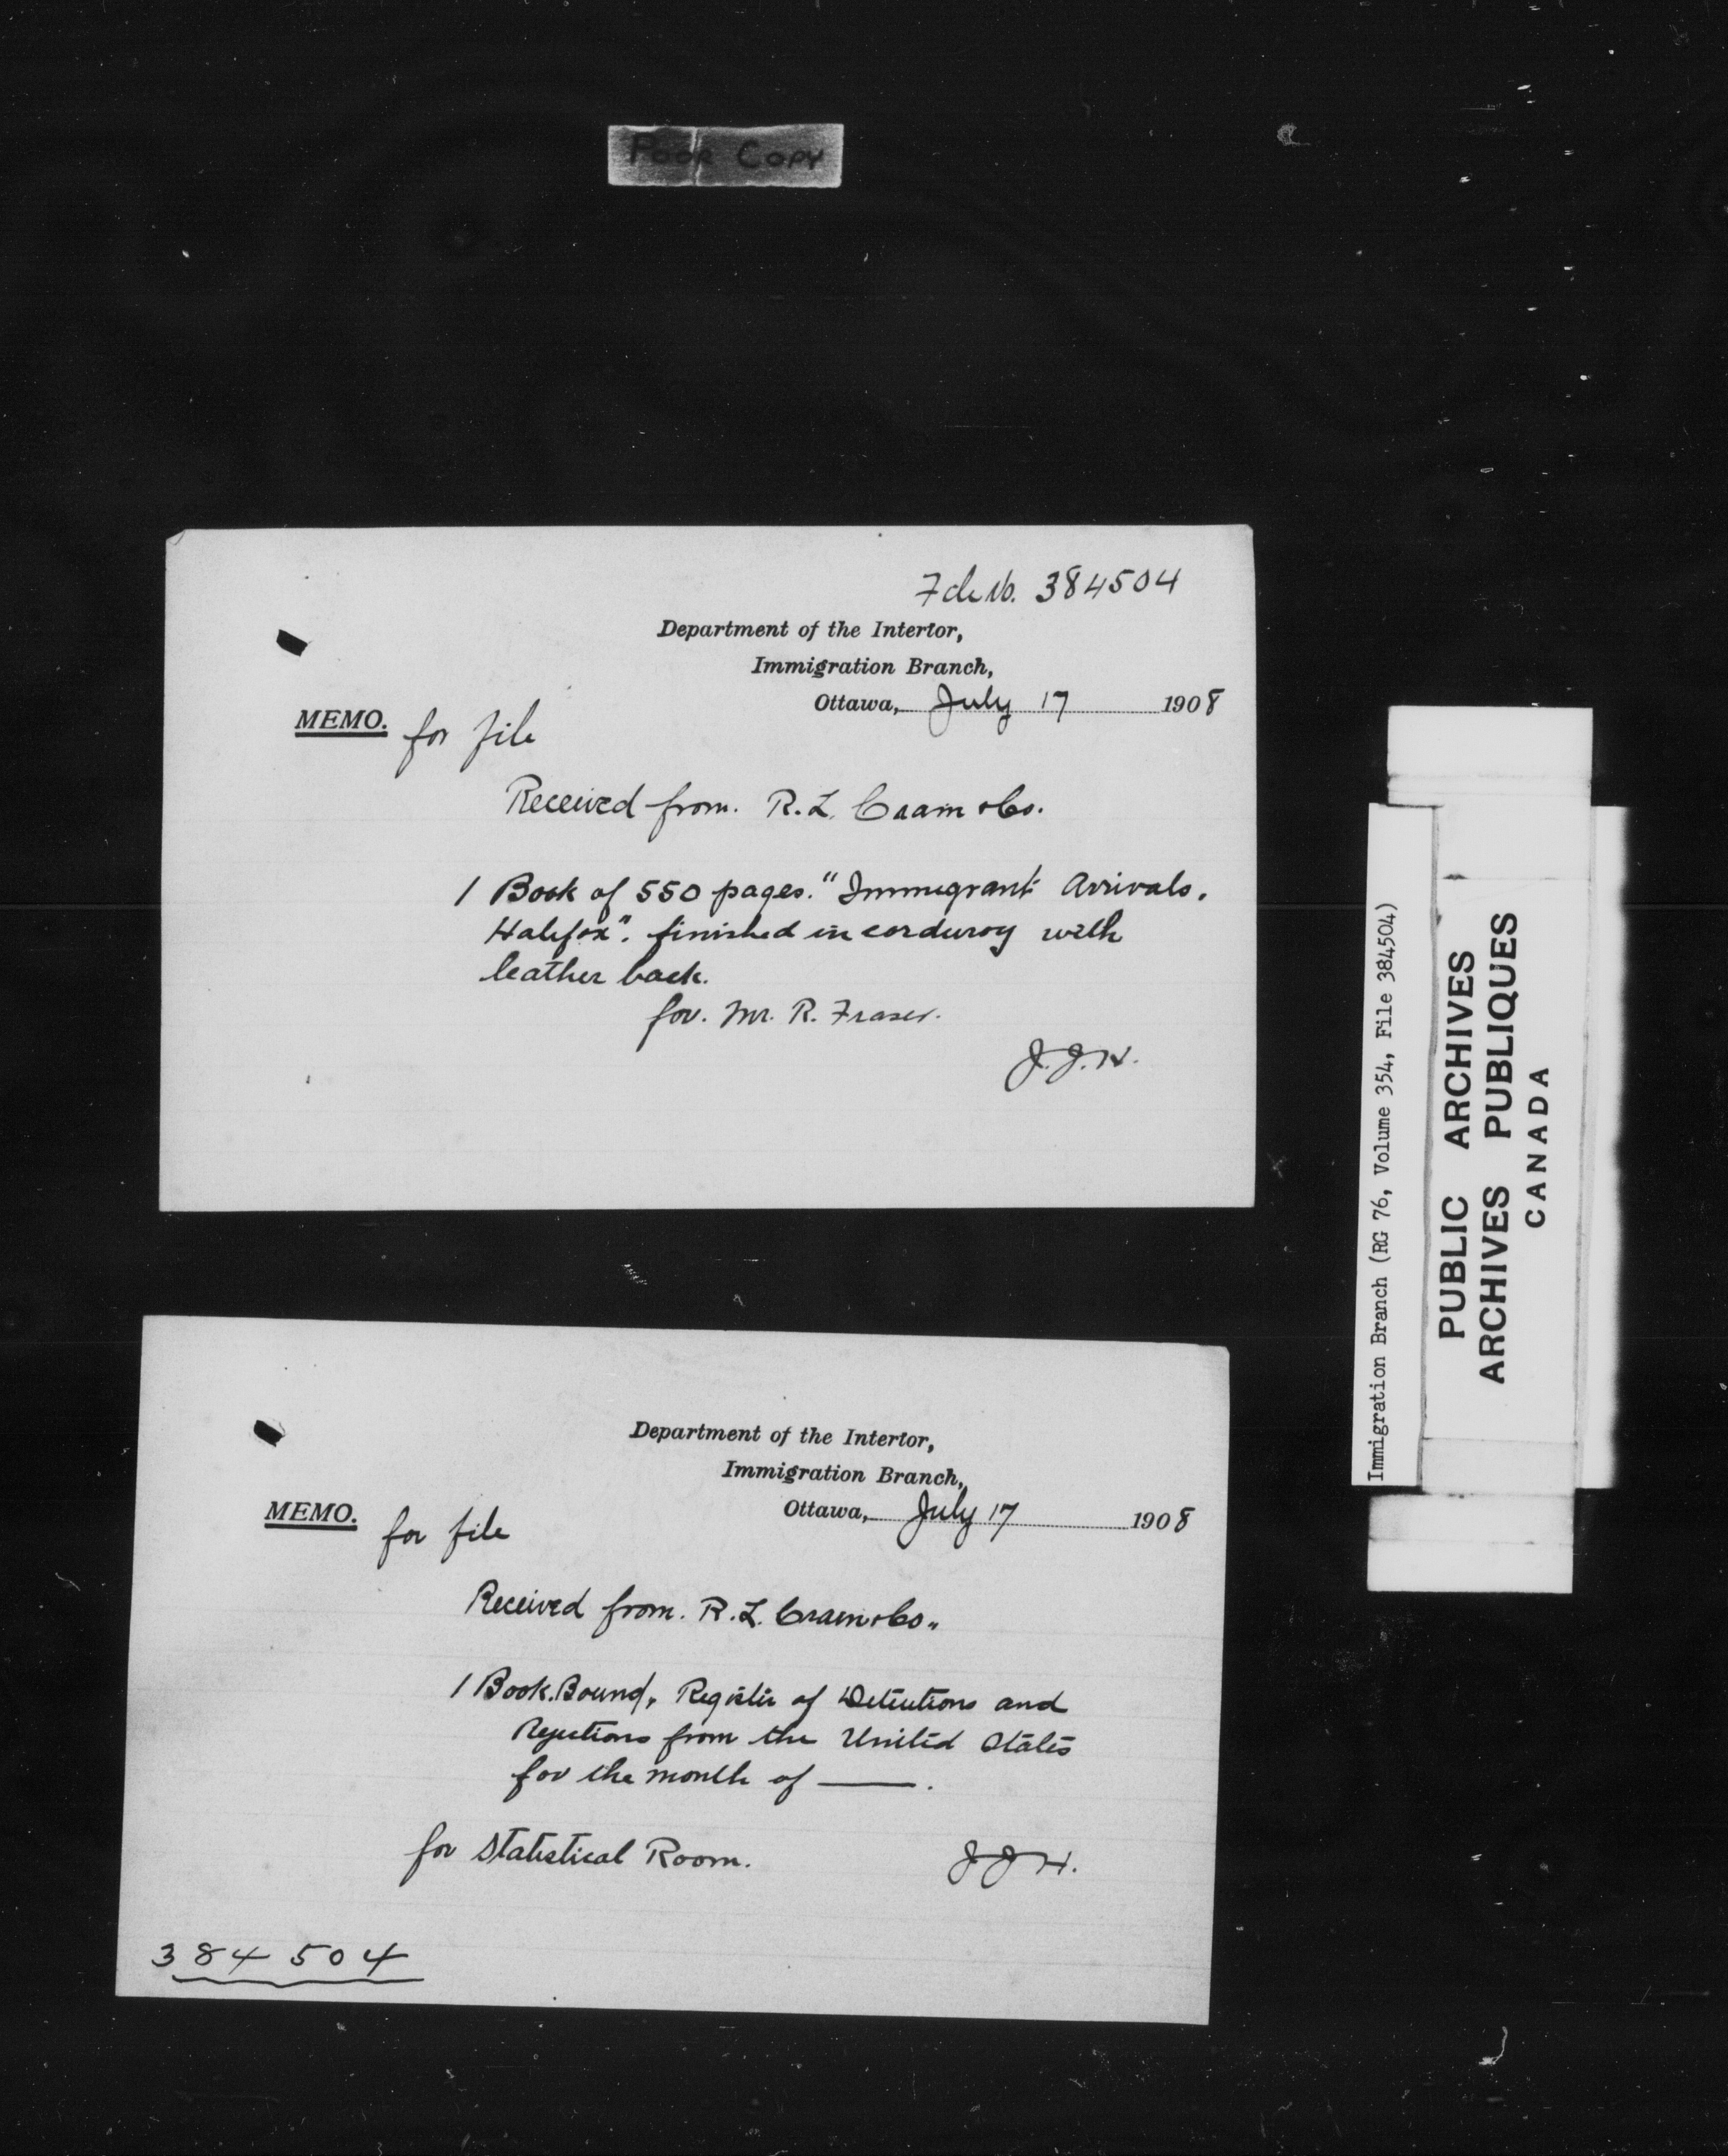 Poor Copy
File No. 384504
Department of the Interior,
Immigration Branch,
Ottawa, July 17 1908
MEMO. for file
Received from. R. L. Crain & Co.
1 Book of 550 pages. "Immigrant Arrivals,
Halifax". finished in corduroy with
leather back.
for. Mr. R. Fraser.
J. J. H.
Department of the Interior,
Immigration Branch,
Ottawa, July 17 1908
MEMO. for file
Received from. R. L. Crain & Co.,
1 Book. Bound, Register of Detentions and
Rejections from the United States
for the month of ———.
for Statistical Room. J J H.
384 504
Immigration Branch (RG 76, Volume 354, File 384504)
PUBLIC ARCHIVES
ARCHIVES PUBLIQUES
CANADA